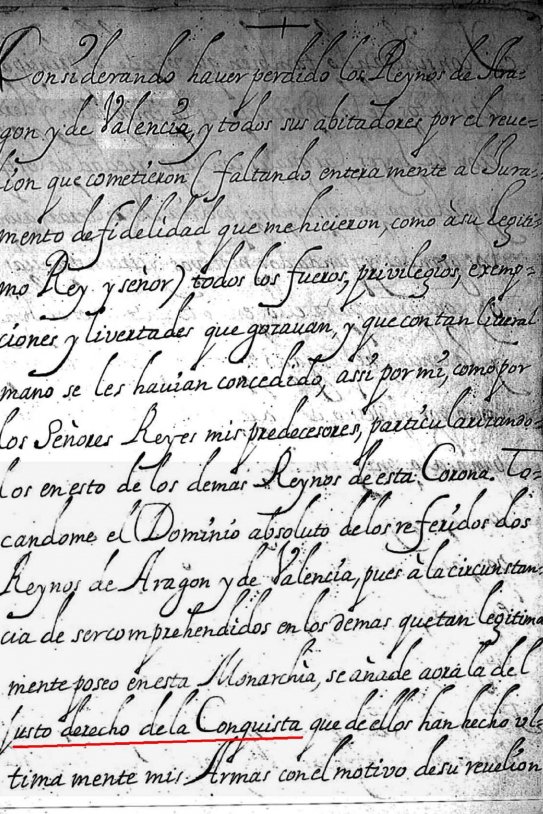 Considerando haver perdido los Reynos de Ara=
gon y de Valencia, y todos sus abitadores por el reve=
lion que cometieron (faltando entera mente al Jura=
mento de fidelidad que me hicieron, como à su legiti=
mo Rey y señor) todos los fueros, privilegios, exemp=
ciones y livertades que gozavan, y que con tan liveral
mano se les havian concedido, assi por mi, como por
los Señores Reyes mis predecesores, particularizando=
los en esto de los demas Reynos de esta Corona. To=
candome el Dominio absoluto de los referidos dos
Reynos de Aragon y de Valencia, pues à la circunstan=
cia de ser comprehendidos en los demas que tan legitima
mente poseo en esta Monarchia, se añade aora la del
justo derecho de la Conquista que de ellos han hecho ul=
tima mente mis Armas con el motivo de su revelion